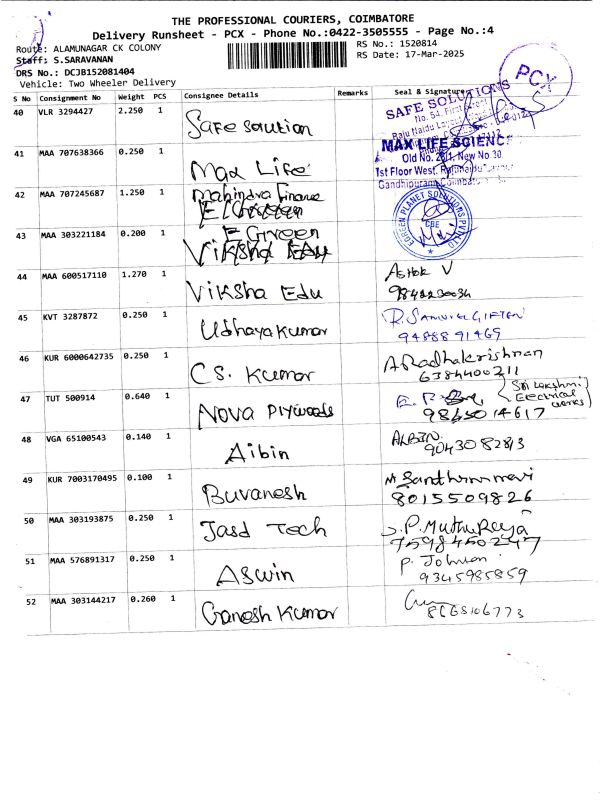 THE PROFESSIONAL COURIERS, COIMBATORE
Delivery Runsheet - PCX - Phone No.:0422-3505555 - Page No.:4
Route: ALAMUNAGAR CK COLONY
RS No.: 1520814
Staff: S.SARAVANAN
RS Date: 17-Mar-2025
DRS No.: DCJB152081404
Vehicle: Two Wheeler Delivery
PCX
S No Consignment No Weight PCS Consignee Details Remarks Seal & Signature
40 VLR 3294427 2.250 1 Safe solution
SAFE SOLUTIONS
No. 54, First
Raju Naidu
41 MAA 707638366 0.250 1 Max Life
MAX LIFE SCIENC
Old No. New No.30
1st Floor West,
Gandhipuram, Coimbat
42 MAA 707245687 1.250 1 Mahindra Finance
43 MAA 303221184 0.200 1 E Green
Viksha Edu
EGREEN PLANET SOLUTIONS PVT LTD
CBE
44 MAA 600517110 1.270 1 Viksha Edu
Ashok V
45 KVT 3287872 0.250 1 Udhayakumar
9488891469
46 KUR 6000642735 0.250 1 CS. Kumar
A Radhakrishnan
6384400211
47 TUT 500914 0.640 1 Nova Plywoods
Sri Lakshmi
Electrical
works
9865014617
48 VGA 65100543 0.140 1 Aibin
ALBIN
49 KUR 7003170495 0.100 1 Buvanesh
8015509826
50 MAA 303193875 0.250 1 Jasd Tech
S.P. Muthu Raja
7598450247
51 MAA 576891317 0.250 1 Aswin
P. Johnson
9345985859
52 MAA 303144217 0.260 1 Ganesh Kumar